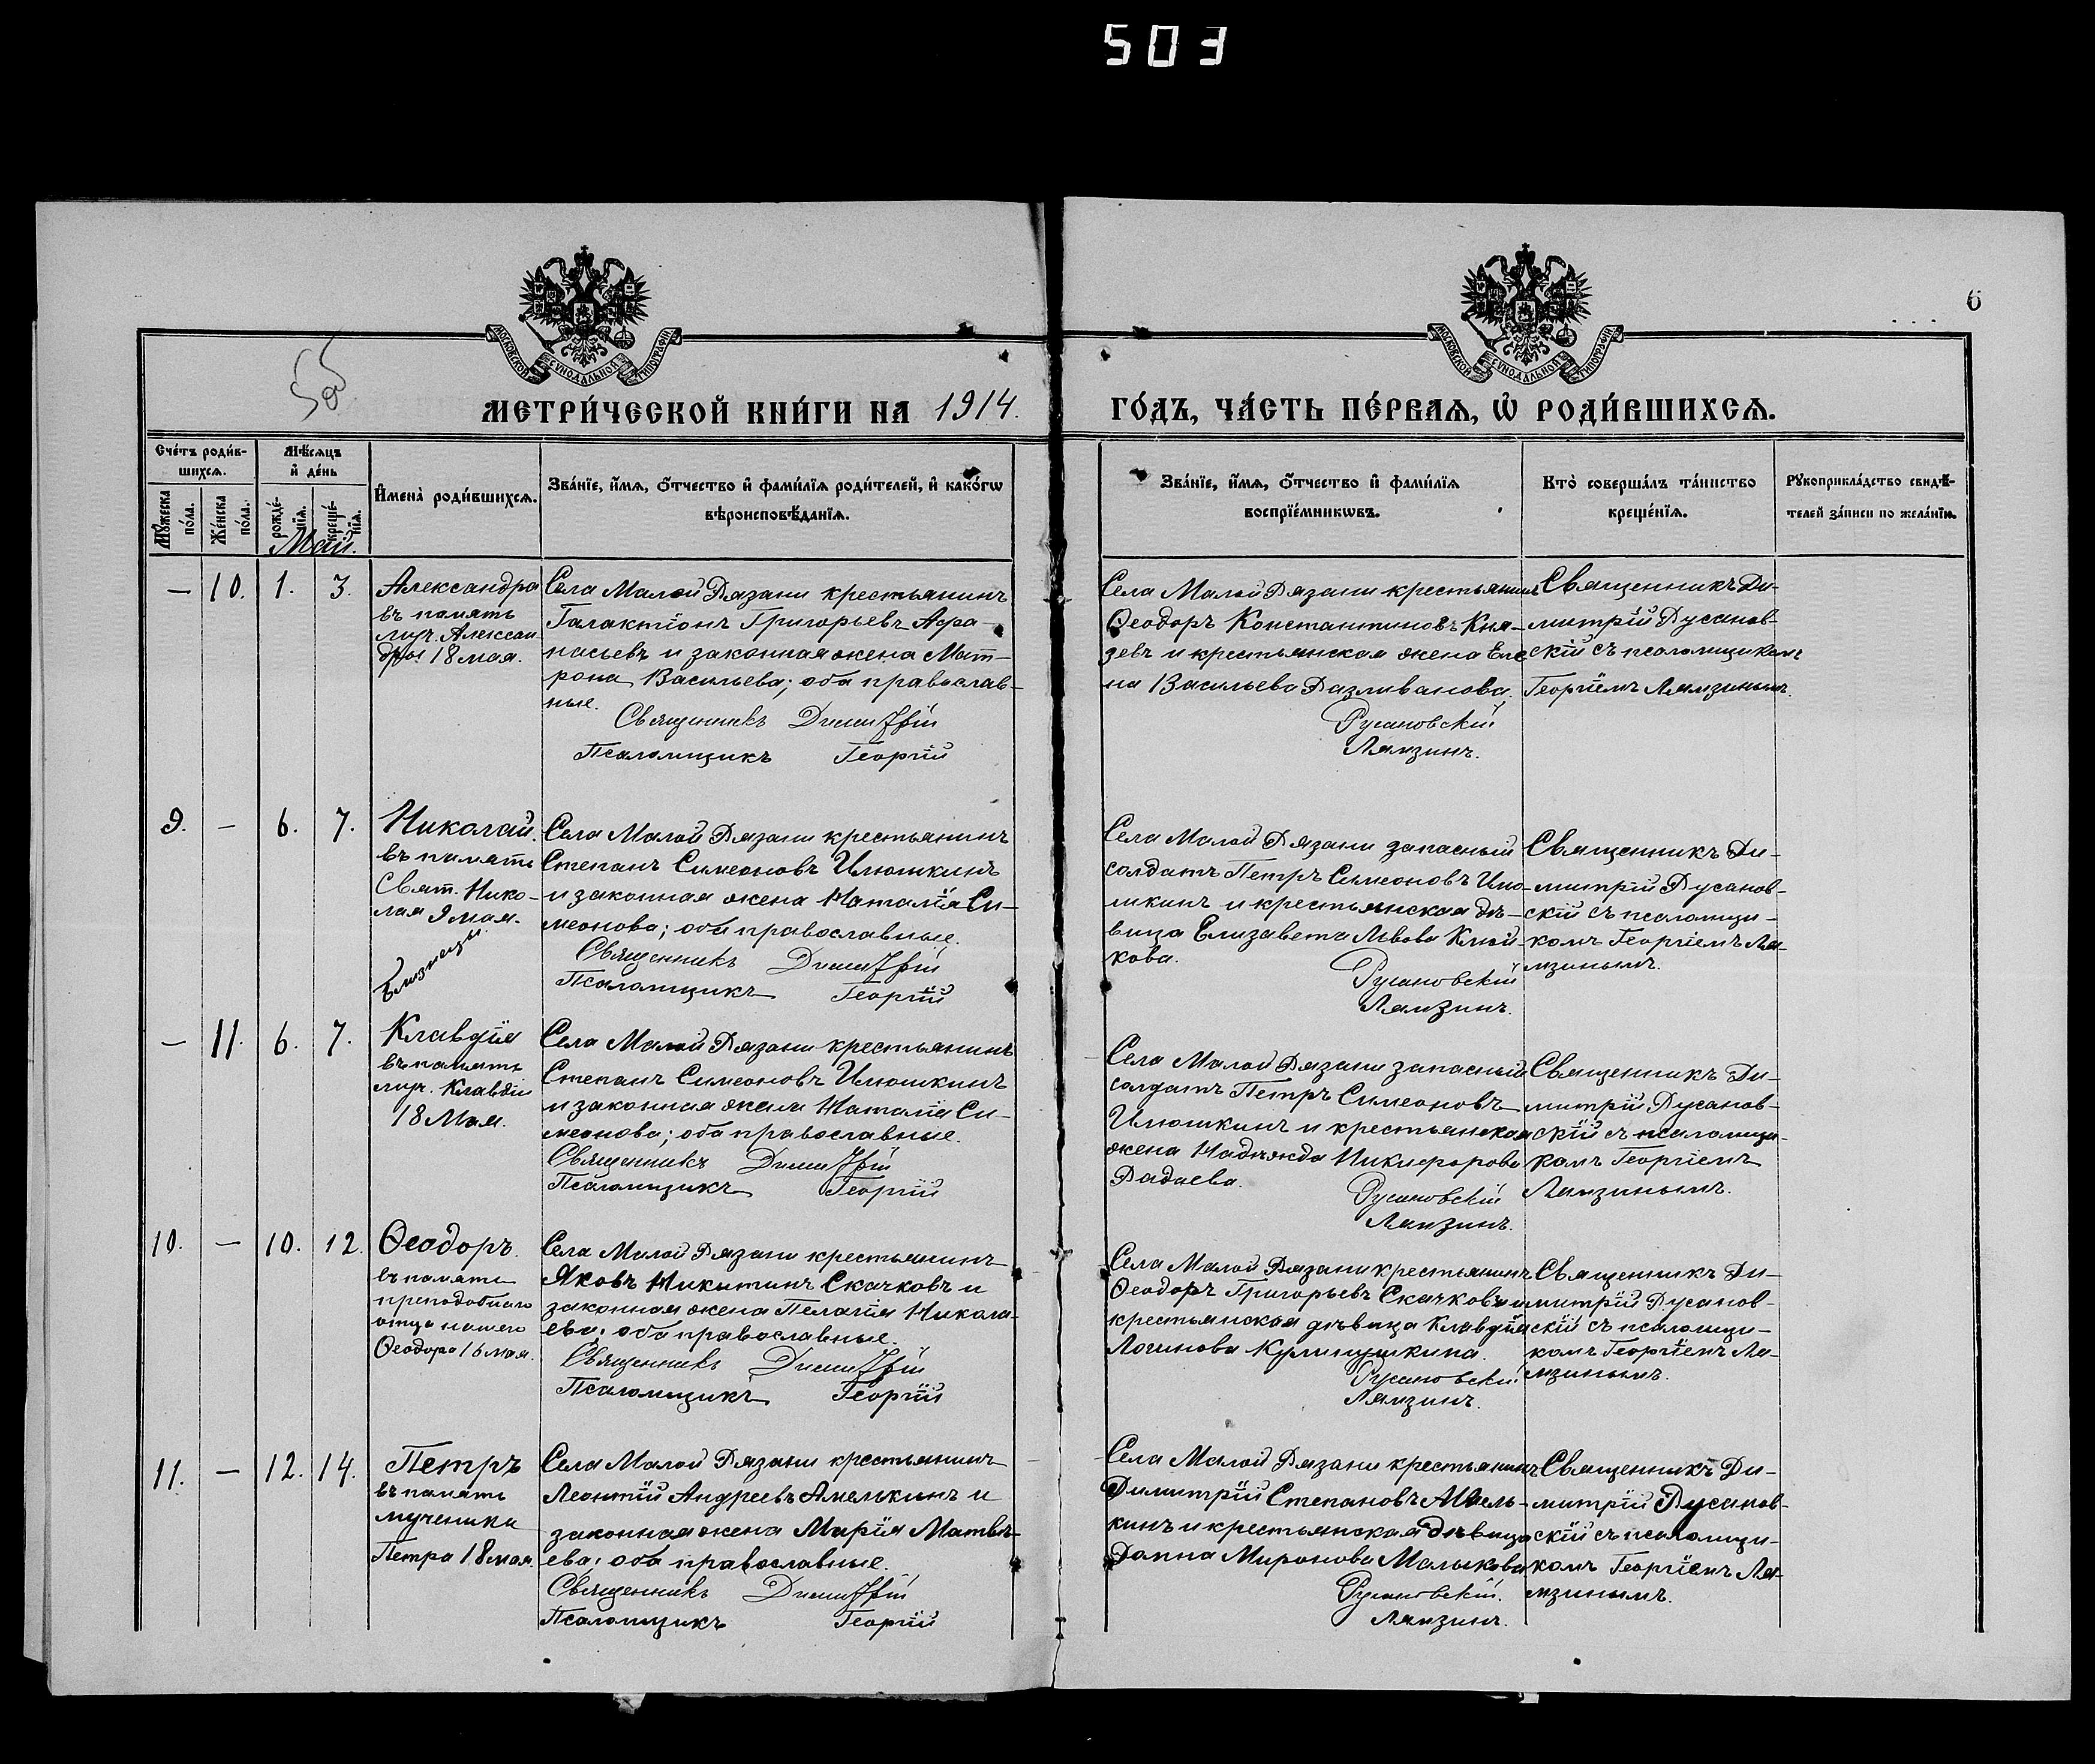 503
6
5об
МОСКОВСКОЙ СУНОДАЛЬНОЙ ТИПОГРАФІИ
МОСКОВСКОЙ СУНОДАЛЬНОЙ ТИПОГРАФІИ
МЕТРИ́ЧЕСКОЙ КНИ́ГИ НА 1914. ГО́ДЪ, ЧА́СТЬ ПЕ́РВАѦ, Ѡ҆ РОДИ́ВШИХСѦ.
Сче́тъ роди́в-
шихсѧ.
Мѣ́сѧцъ
и҆ де́нь
Мꙋ́жеска
по́ла.
Же́нска
по́ла.
рожде́-
нїѧ.
креще́-
нїѧ.
И҆мена̀ роди́вшихсѧ.
Зва́нїе, и҆́мѧ, ѻ҆́тчество и҆ фами́лїѧ роди́телей, и҆ како́гѡ
вѣроисповѣ́данїѧ.
Зва́нїе, и҆́мѧ, ѻ҆́тчество и҆ фами́лїѧ
воспрїе́мникѡвъ.
Кто̀ соверша́лъ та́инство
креще́нїѧ.
Рꙋкоприкла́дство свидѣ́-
телей за́писи по жела́нїю.
Май.
— 10. 1. 3.
Александра
въ память
муч. Алексан-
дры 18 мая.
Села Малой Рязани крестьянинъ
Галактіонъ Григорьевъ Афа-
насьевъ и законная жена Мат-
рона Васильева; оба православ-
ные.
Священникъ Димитрій
Псаломщикъ Георгій
Села Малой Рязани крестьянинъ
Ѳеодоръ Константиновъ Кня-
зевъ и крестьянская жена Еле
на Васильева Разливанова.
Русановскій
Лямзинъ.
Священникъ Ди-
митрій Русанов-
скій съ псаломщикомъ
Георгіемъ Лямзинымъ.
9. — 6. 7.
Николай.
въ память
Свят. Нико-
лая 9 мая.
Близнецы
Села Малой Рязани крестьянинъ
Степанъ Симеоновъ Илюшкинъ
и законная жена Наталія Си-
меонова; оба православные.
Священникъ Димитрій
Псаломщикъ Георгій
Села Малой Рязани запасный
солдатъ Петръ Симеоновъ Илю-
шкинъ и крестьянская дѣ-
вица Елизавета Львова
кова.
Русановскій
Лямзинъ.
Священникъ Ди-
митрій Русанов-
скій съ псаломщи-
комъ Георгіемъ Ля-
мзинымъ.
— 11. 6. 7.
Клавдія
въ память
муч. Клавдіи
18 Мая.
Села Малой Рязани крестьянинъ
Степанъ Симеоновъ Илюшкинъ
и законная жена Наталія Си-
меонова; оба православные.
Священникъ Димитрій
Псаломщикъ Георгій
Села Малой Рязани запасный
солдатъ Петръ Симеоновъ
Илюшкинъ и крестьянская
жена Надежда Никифорова
Радаева.
Русановскій
Лямзинъ.
Священникъ Ди-
митрій Русанов-
скій съ псаломщи-
комъ Георгіемъ
Лямзинымъ.
10. — 10. 12.
Ѳеодоръ.
въ память
преподобнаго
отца нашего
Ѳеодора 16 мая.
Села Малой Рязани крестьянинъ
Яковъ Никитинъ Скачковъ и
законная жена Пелагія Никола-
ева; оба православные.
Священникъ Димитрій
Псаломщикъ Георгій
Села Малой Рязани крестьянинъ
Ѳеодоръ Григорьевъ Скачковъ и
крестьянская дѣвица Клавдія
Логинова
Русановскій
Лямзинъ.
Священникъ Ди-
митрій Русанов-
скій съ псаломщи-
комъ Георгіемъ Ля-
мзинымъ.
11. — 12. 14.
Петръ
въ память
мученика
Петра 18 мая.
Села Малой Рязани крестьянинъ
Леонтій Андреевъ Амелькинъ и
законная жена Марія Матвѣ-
ева; оба православные.
Священникъ Димитрій
Псаломщикъ Георгій
Села Малой Рязани крестьянинъ
Димитрій Степановъ Амель-
кинъ и крестьянская дѣвица
Домна Миронова Малыкова
Русановскій.
Лямзинъ.
Священникъ Ди-
митрій Русанов-
скій съ псаломщи-
комъ Георгіемъ Ля-
мзинымъ.